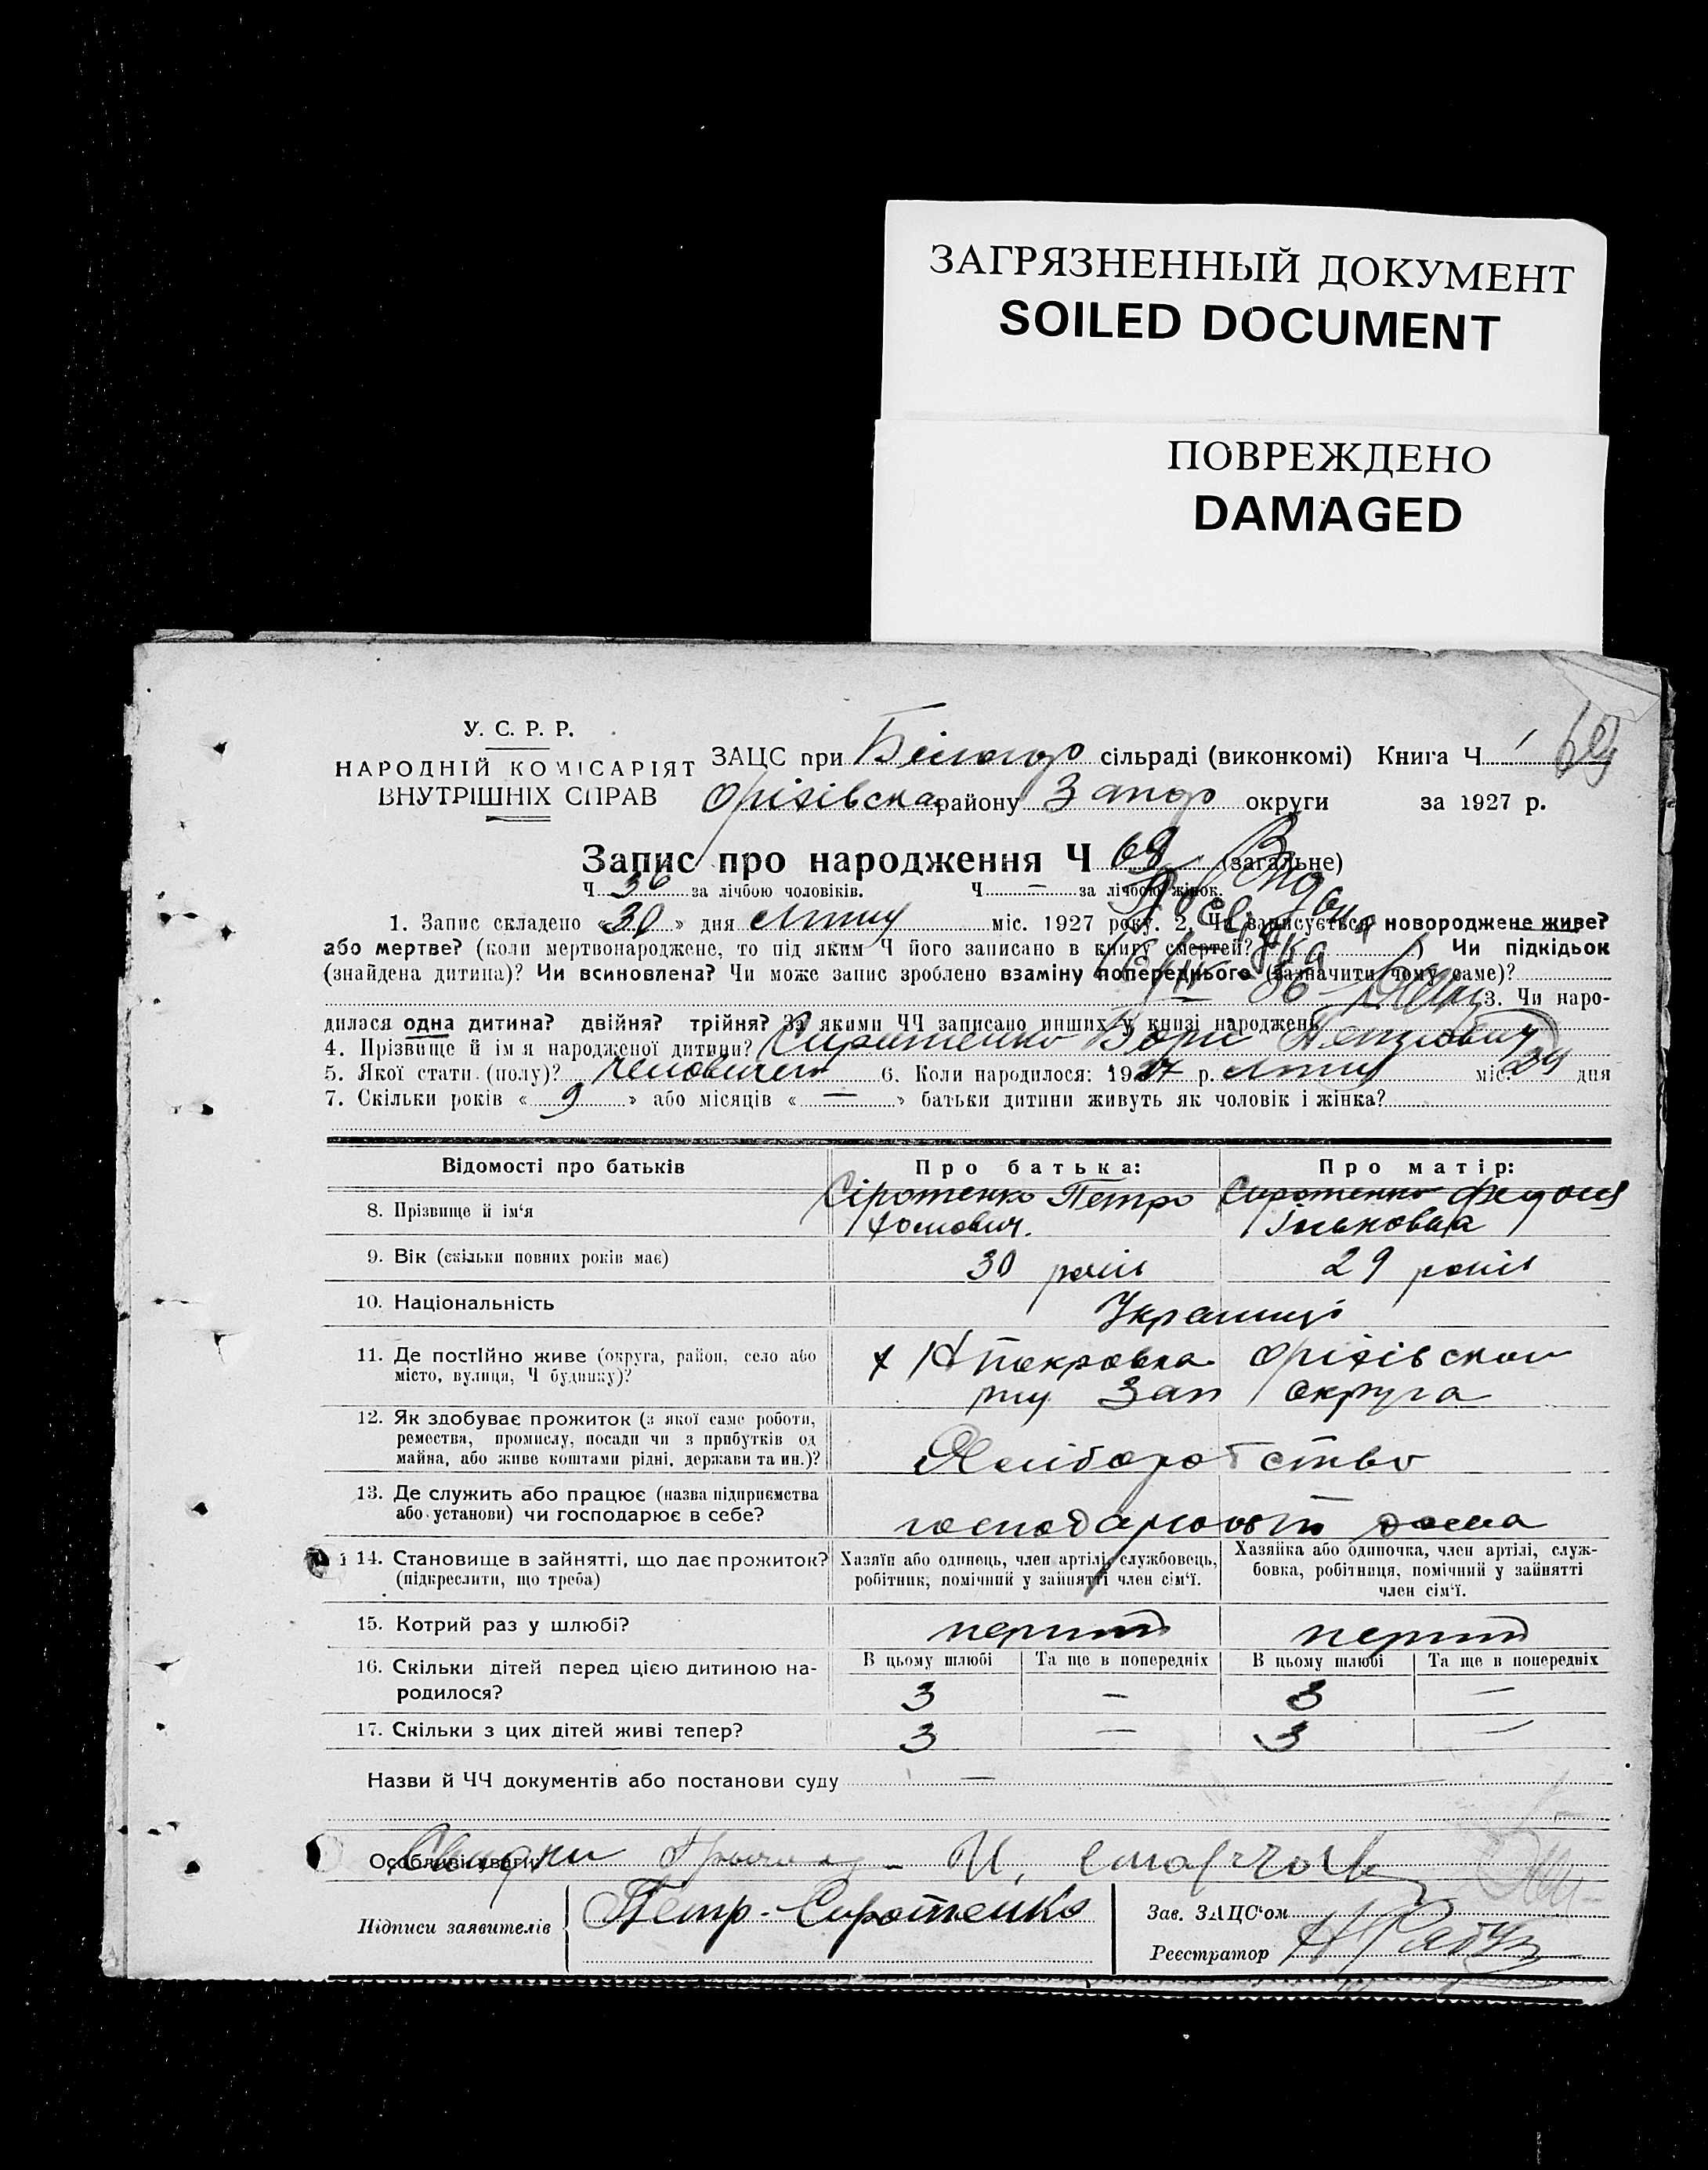 ЗАГРЯЗНЕННЫЙ ДОКУМЕНТ
SOILED DOCUMENT
ПОВРЕЖДЕНО
DAMAGED
У. С. Р. Р.
НАРОДНІЙ КОМІСАРІЯТ
ВНУТРІШНІХ СПРАВ
ЗАЦС при сільраді (виконкомі) Книга Ч 1 69
Оріхівска району Запор округи за 1927 р.
Запис про народження Ч 69 (загальне)
Ч 36 за лічбою чоловіків. Ч — за лічбою жінок.
1. Запис складено «30» дня Липня міс. 1927 року. 2. Чи записується новороджене живе?
або мертве? (коли мертвонароджене, то під яким Ч його записано в книгу смертей? ) Чи підкідьок
(знайдена дитина)? Чи всиновлена? Чи може запис зроблено взаміну попереднього (зазначити чому саме)?
3. Чи наро-
дилася одна дитина? двійня? трійня? За якими ЧЧ записано инших у книзі народжень
4. Прізвище й ім'я народженої дитини? Сиротенко Борис Петрович
5. Якої стати (полу)? 6. Коли народилося: 1927 р. Липня міс. 29 дня
7. Скільки років « 9 » або місяців « — » батьки дитини живуть як чоловік і жінка?
Відомості про батьків Про батька: Про матір:
8. Прізвище й ім'я Сіротенко Петро Сиротенко
9. Вік (скільки повних років має) 30 років 29 років
10. Національність Українці
11. Де постійно живе (округа, район, село або
місто, вулиця, Ч будинку)?
Покровка Оріхівском
Зап округа
12. Як здобуває прожиток (з якої саме роботи,
ремества, промислу, посади чи з прибутків од
майна, або живе коштами рідні, держави та ин.)?
Хліборобство
13. Де служить або працює (назва підприємства
або установи) чи господарює в себе?
дома
14. Становище в зайнятті, що дає прожиток?
(підкреслити, що треба)
Хазяїн або одинець, член артілі, службовець,
робітник, помічний у зайнятті член сім'ї.
Хазяйка або одиночка, член артілі, служ-
бовка, робітниця, помічний у зайнятті
член сім'ї.
15. Котрий раз у шлюбі? перший перший
В цьому шлюбі Та ще в попередніх В цьому шлюбі Та ще в попередніх
16. Скільки дітей перед цією дитиною на-
родилося?
3 — 3 —
17. Скільки з цих дітей живі тепер? 3 — 3 —
Назви й ЧЧ документів або постанови суду —
Особливі уваги: Свидки
Підписи заявителів Петр Сиротенко
Зав. ЗАЦС'ом
Реєстратор